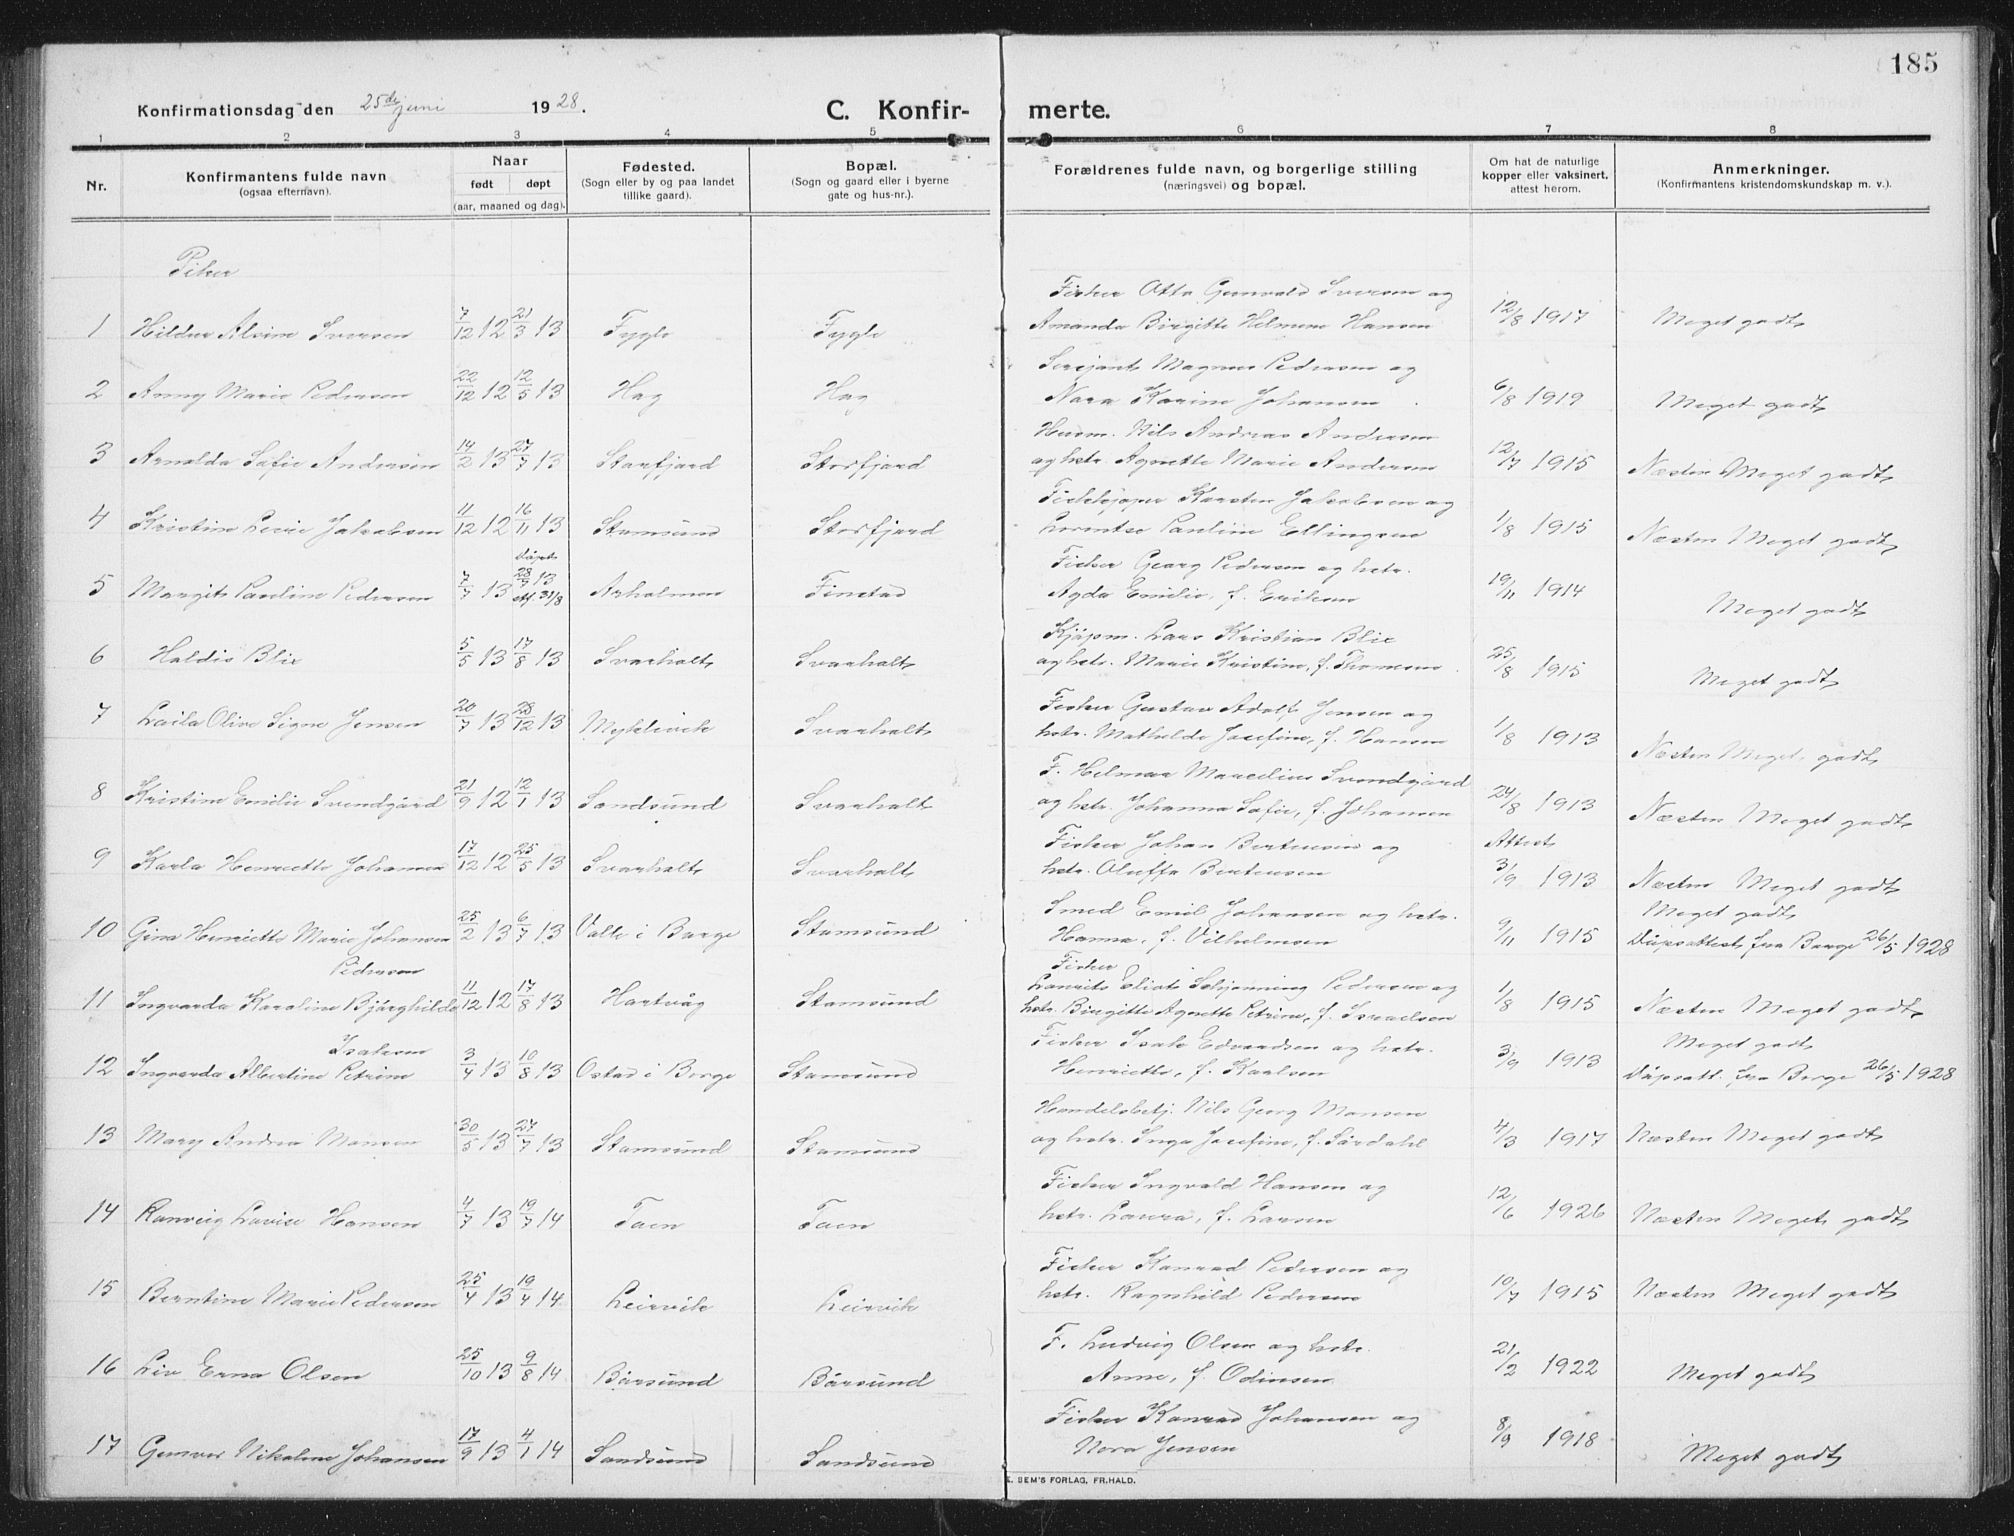 185
Konfirmationsdag den 25de juni 1928.
C. Konfir-
merte.
1 2 3 4 5 6 7 8
Nr.
Konfirmantens fulde navn
(ogsaa efternavn).
Naar
født døpt
(aar, maaned og dag).
Fødested.
(Sogn eller by og paa landet
tillike gaard).
Bopæl.
(Sogn og gaard eller i byerne
gate og hus-nr.).
Forældrenes fulde navn, og borgerlige stilling
(næringsvei) og bopæl.
Om hat de naturlige
kopper eller vaksinert,
attest herom.
Anmerkninger.
(Konfirmantens kristendomskundskap m. v.).
Piker
Fisker Otto Gunvald Iversen og
1 Hildur Alvine Iversen 7/12 12 21/3 13 Fygle Fygle Amanda Birgitte Helmine Hansen 12/8 1917 Meget godt
Serjant Magnus Pedersen og
2 Anny Marie Pedersen 22/12 12 12/5 13 Hag Hag Nora Karine Johansen 6/8 1919 Meget godt
Husm. Nils Andreas Andersen
3 Arnolda Sofie Andersen 14/2 13 27/7 13 Storfjord Storfjord og hstr. Agnette Marie Andersen 12/7 1915 Næsten Meget godt
Fiskkjøper Karsten Jakobsen og
4 Kristine Jakobsen 11/12 12 16/11 13 Stamsund Storfjord Lorentse Pauline Ellingsen 1/8 1915 Næsten Meget godt
Fisker Georg Pedersen og hstr.
5 Margit Pauline Pedersen 7/7 13 døpt 28/7 13 Arholmen Finstad Agda Emilie, f. Eriksen 19/11 1914 Meget godt
Kjøpm. Lars Kristian Blix
6 Haldis Blix 5/5 13 17/8 13 Svarholt Svarholt og hstr. Marie Kristine, f. Thomesen 25/8 1915 Meget godt
Fisker Gustav Adolf Jensen og
7 Laila Olive Signe Jensen 20/7 13 28/12 13 Myklevik Svarholt hstr. Mathilde Josefine, f. Hansen 1/8 1913 Næsten Meget godt
F. Helmer Marcelius Svendgård
8 Kristine Emilie Svendgård 21/9 12 12/1 13 Sandsund Svarholt og hstr. Johanna Sofie, f. Johansen 24/8 1913 Næsten Meget godt
Fisker Johan Bertensen og Attest
9 Karla Henriette Johansen 17/12 12 25/5 13 Svarholt Svarholt hstr. Oluffa Bertensen 3/9 1913 Næsten Meget godt
Smed Emil Johansen og hstr. Meget godt
10 Gina Henriette Marie Johansen 25/2 13 6/7 13 Valle i Borge Stamsund Hanna, f. Vilhelmsen 9/11 1915 Dåpsattest fra Borge 26/5 1928
Pedersen Fisker
Laurits Eliot Schjenning Pedersen og
11 Ingvarda Karoline Bjørghilda 11/12 12 17/8 13 Hartvåg Stamsund hstr. Birgitte Agnette Petrine, f. Israelsen 1/8 1915 Næsten Meget godt
Isaksen Fisker Isak Edvardsen og hstr. Meget godt
12 Ingvarda Albertine Petrine 3/4 13 10/8 13 Ostad i Borge Stamsund Henriette, f. Karlsen 3/9 1913 Dåpsatt. fra Borge 26/5 1928
Handelsbetj. Nils Georg Monsen
13 Mary Andrea Monsen 30/5 13 27/7 13 Stamsund Stamsund og hstr. Inga Josefine, f. Sørdahl 4/3 1917 Næsten Meget godt
Fisker Ingvald Hansen og
14 Ranveig Lovise Hansen 4/7 13 19/7 14 Taen Taen hstr. Laura, f. Larsen 12/6 1926 Næsten Meget godt
Fisker Konrad Pedersen og
15 Berntine Marie Pedersen 25/4 13 19/4 14 Leirvik Leirvik hstr. Ragnhild Pedersen 10/7 1915 Næsten Meget godt
F. Ludvig Olsen og hstr.
16 Liv Erna Olsen 25/10 13 9/8 14 Børsund Børsund Anne, f. Odinsen 21/2 1922 Meget godt
Fisker Konrad Johansen og
17 Gunvor Nikoline Johansen 17/9 13 4/1 14 Sandsund Sandsund Nora Jensen 8/9 1918 Meget godt
BEM'S FORLAG, FR.HALD.